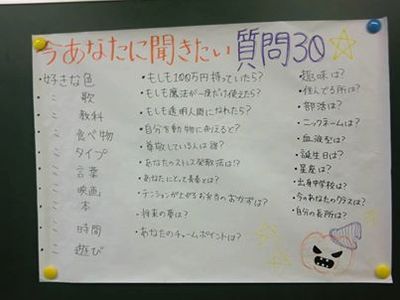 今あなたに聞きたい質問30
・好きな色
・〃 歌
・〃 教科
・〃 食べ物
・〃 タイプ
・〃 言葉
・〃 映画
・〃 本
・〃 時間
・〃 遊び
・もしも100万円持っていたら?
・もしも魔法が一度だけ使えたら?
・もしも透明人間になれたら?
・自分を動物に例えると?
・尊敬している人は誰?
・あなたのストレス発散法は!?
・あなたにとって青春とは?
・テンションが上がるお弁当のおかずは?
・将来の夢は?
・あなたのチャームポイントは?
・趣味は?
・住んでる所は?
・部活は?
・ニックネームは?
・血液型は?
・誕生日は?
・星座は?
・出身中学校は?
・今のあなたのクラスは?
・自分の長所は?